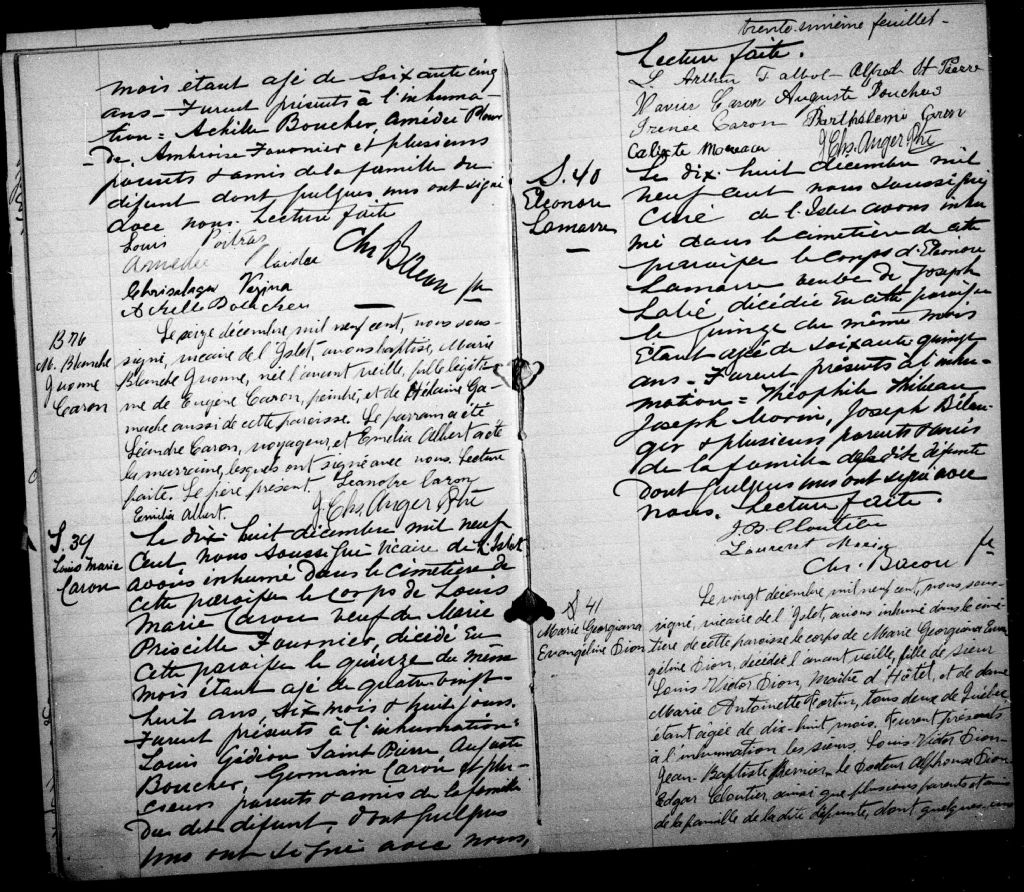 mois étant agé de soixante cinq
ans - Furent présents à l'inhuma-
tion = Achille Boucher, Amédée Plour
de, Ambroise Fournier et plusieurs
parents & amis de la famille du
défunt dont quelques uns ont signé
avec nous. Lecture faite
Louis Poitras
Amedée
Vezina
Achille Boucher
Chs Bacon ptr
B 76
M. Blanche
Yvonne
Caron
Le seize décembre mil neuf cent, nous sous-
signé, vicaire de l'Islet, avons baptisé, Marie
Blanche Yvonne, née l'avant veille, fille légiti-
me de Eugène Caron, peintre, et de Hélaine Ga-
mache aussi de cette paroisse. Le parrain a été
Léandre Caron, voyageur, et Emélia Albert a été
la marraine, lesquels ont signé avec nous. Lecture
faite. Le père présent. Léandre Caron
Emilia Albert. J. Chs. Anger Ptre
S. 39
Louis Marie
Caron
Le dix-huit décembre mil neuf
cent, nous soussigné vicaire de l'Islet
avons inhumé dans le cimetière de
cette paroisse le corps de Louis
Marie Caron veuf de Marie
Priscille Fournier, décédé en
cette paroisse le quinze du même
mois étant agé de quatre vingt-
huit ans, dix mois & huit jours.
Furent présents à l'inhumation =
Louis Gédéon Saint Pierre Auguste
Boucher, Germain Caron et plu-
sieurs parents & amis de la famille
du dit défunt, dont quelques
uns ont signé avec nous,
trente-unième feuillet -
Lecture faite.
L. Arthur Talbot - Alfred St Pierre
Xavier Caron Auguste Bouchers
Irenée Caron Barthelemi Caron
Calixte Moreau J. Chs. Anger Ptre
S. 40
Eléonore
Lamarre
Le dix-huit décembre mil
neuf cent nous soussigné
Curé de l'Islet avons inhu
mé dans le cimetière de cette
paroisse le corps d'Eléonore
Lamarre veuve de Joseph
décédée en cette paroisse
le quinze du même mois
étant agée de soixante quinze
ans - Furent présents à l'inhu-
mation = Théophile Thibeau
Joseph Morin, Joseph Bélan-
ger & plusieurs parents & amis
de la famille de la dite défunte
dont quelques uns ont signé avec
nous. Lecture faite.
J. B. Cloutier
Laurent Morin
Chs. Bacon ptr
S 41
Marie Georgiana
Evangéline Dion
Le vingt décembre mil neuf cent, nous sous-
signé, vicaire de l'Islet, avons inhumé dans le cime-
tière de cette paroisse le corps de Marie Georgiana Evan
géline Dion, décédée l'avant veille, fille de sieur
Louis Victor Dion, Maître d'Hôtel, et de dame
Marie Antoinette Fortin, tous deux de Québec
étant agée de dix-huit mois. Furent présents
à l'inhumation les sieurs Louis-Victor Dion
Jean-Baptiste Bernier, le Docteur Alphonse Dion
Edgar Cloutier, ainsi que plusieurs parents et amis
de la famille de la dite défunte, dont quelques-uns